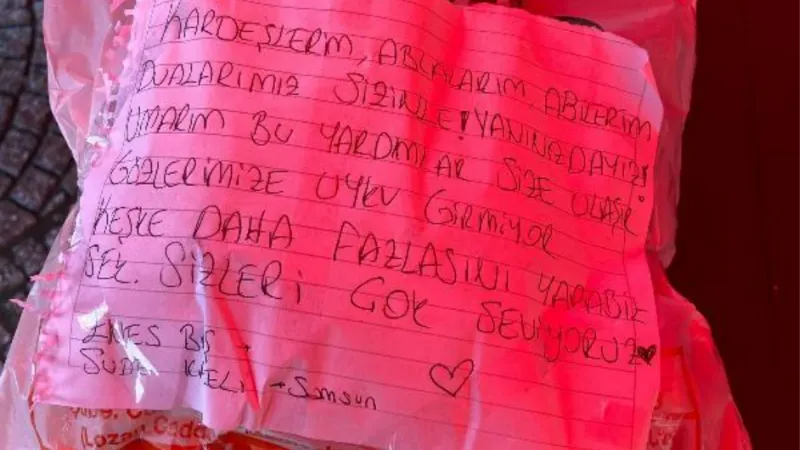 KARDEŞLERİM, ABLALARIM, ABİLERİM
DUALARIMIZ SİZİNLE! YANINIZDAYIZ!
UMARIM BU YARDIMLAR SİZE ULAŞIR
GÖZLERİMİZE UYKU GİRMİYOR
KEŞKE DAHA FAZLASINI YAPABİL
SEK. SİZLERİ ÇOK SEVİYORUZ
ENES
SUDE → Samsun
Lozan Cadde